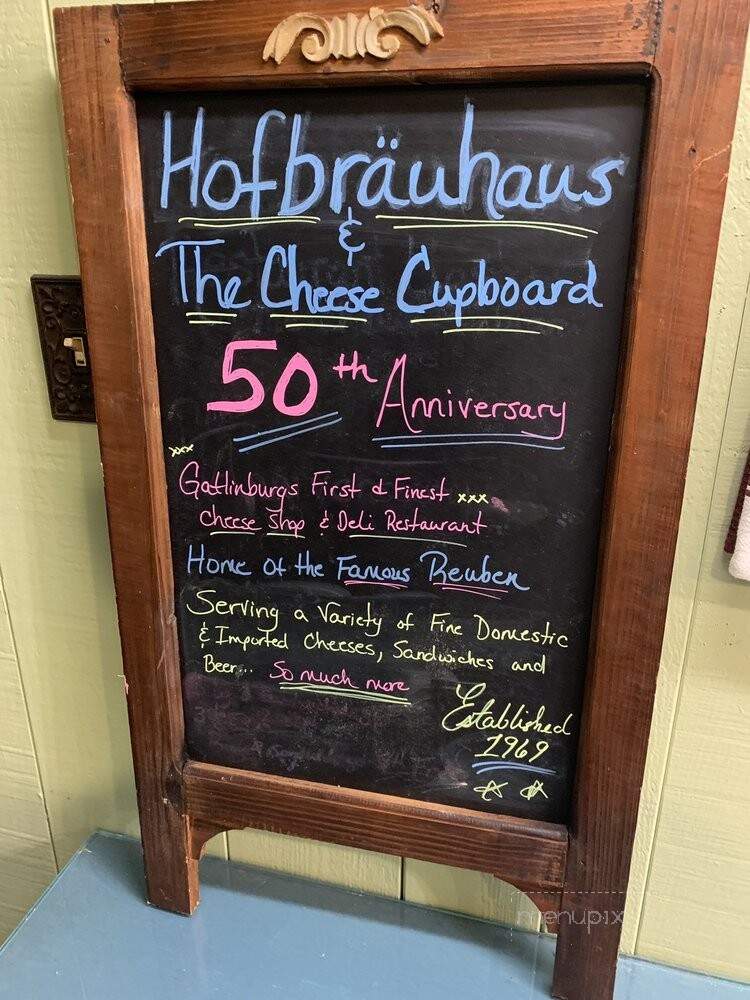 Hofbräuhaus
&
The Cheese Cupboard
50th Anniversary
xxx
Gatlinburgs First & Finest xxx
cheese shop & Deli Restaurant
Home of the Famous Reuben
Serving a Variety of Fine Domestic
& Imported Cheeses, Sandwiches and
Beer... So much more
Established
1969
menupix